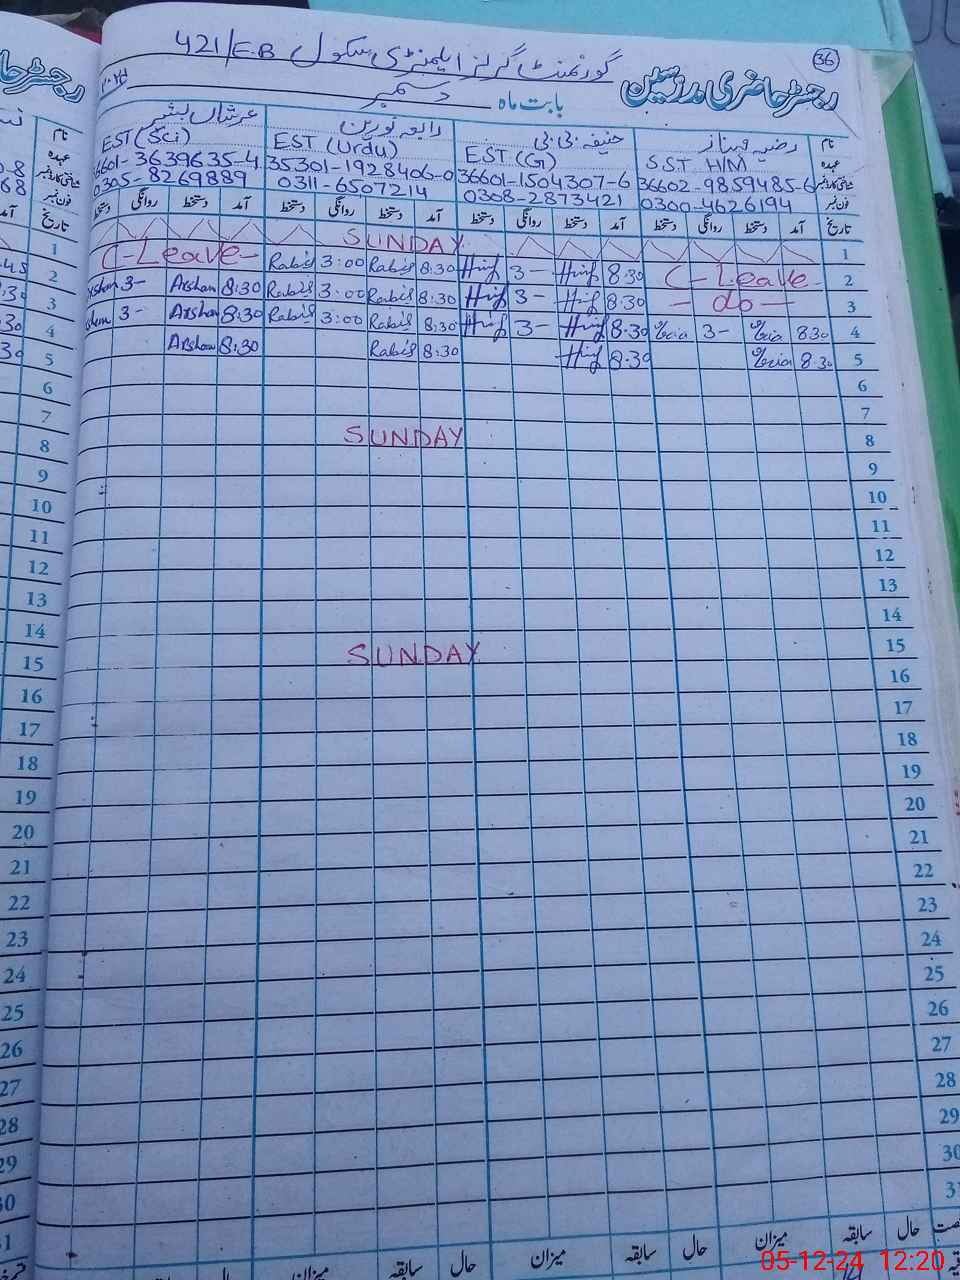 گورنمنٹ گرلز ایلیمنٹری سکول 421/E.B
36
رجسٹر حاضری مدرسین
بابت ماہ دسمبر
نام رضیہ مہناز حنیفہ بی بی رابعہ نورین عرشاں بشیر
عہدہ S.S.T H/M EST (G) EST (Urdu) EST (Sci)
شناختی کارڈ نمبر 36602-9859485-6 36601-1504307-6 35301-1928406-0 36601-3639635-4
فون نمبر 0300-4626194 0308-2873421 0311-6507214 0305-8269889
تاریخ آمد دستخط روانگی دستخط آمد دستخط روانگی دستخط آمد دستخط روانگی دستخط آمد دستخط روانگی دستخط
1 SUNDAY
2 C-Leave 8:30 Hinf 3- Hinf 8:30 Rabis 3:00 Rabis C-Leave
3 -do- 8:30 Hinf 3- Hinf 8:30 Rabis 3:00 Rabis 8:30 Arsham 3- Arsham
4 8:30 3- 8:30 Hinf 3- Hinf 8:30 Rabis 3:00 Rabis 8:30 Arsham 3- Arsham
5 8:30 8:30 Hinf 8:30 Rabis 8:30 Arsham
6
7
8 SUNDAY
9
10
11
12
13
14
15 SUNDAY
16
17
18
19
20
21
22
23
24
25
26
27
28
29
30
31
حال سابقہ میزان حال سابقہ میزان حال سابقہ میزان حال
05-12-24 12:20